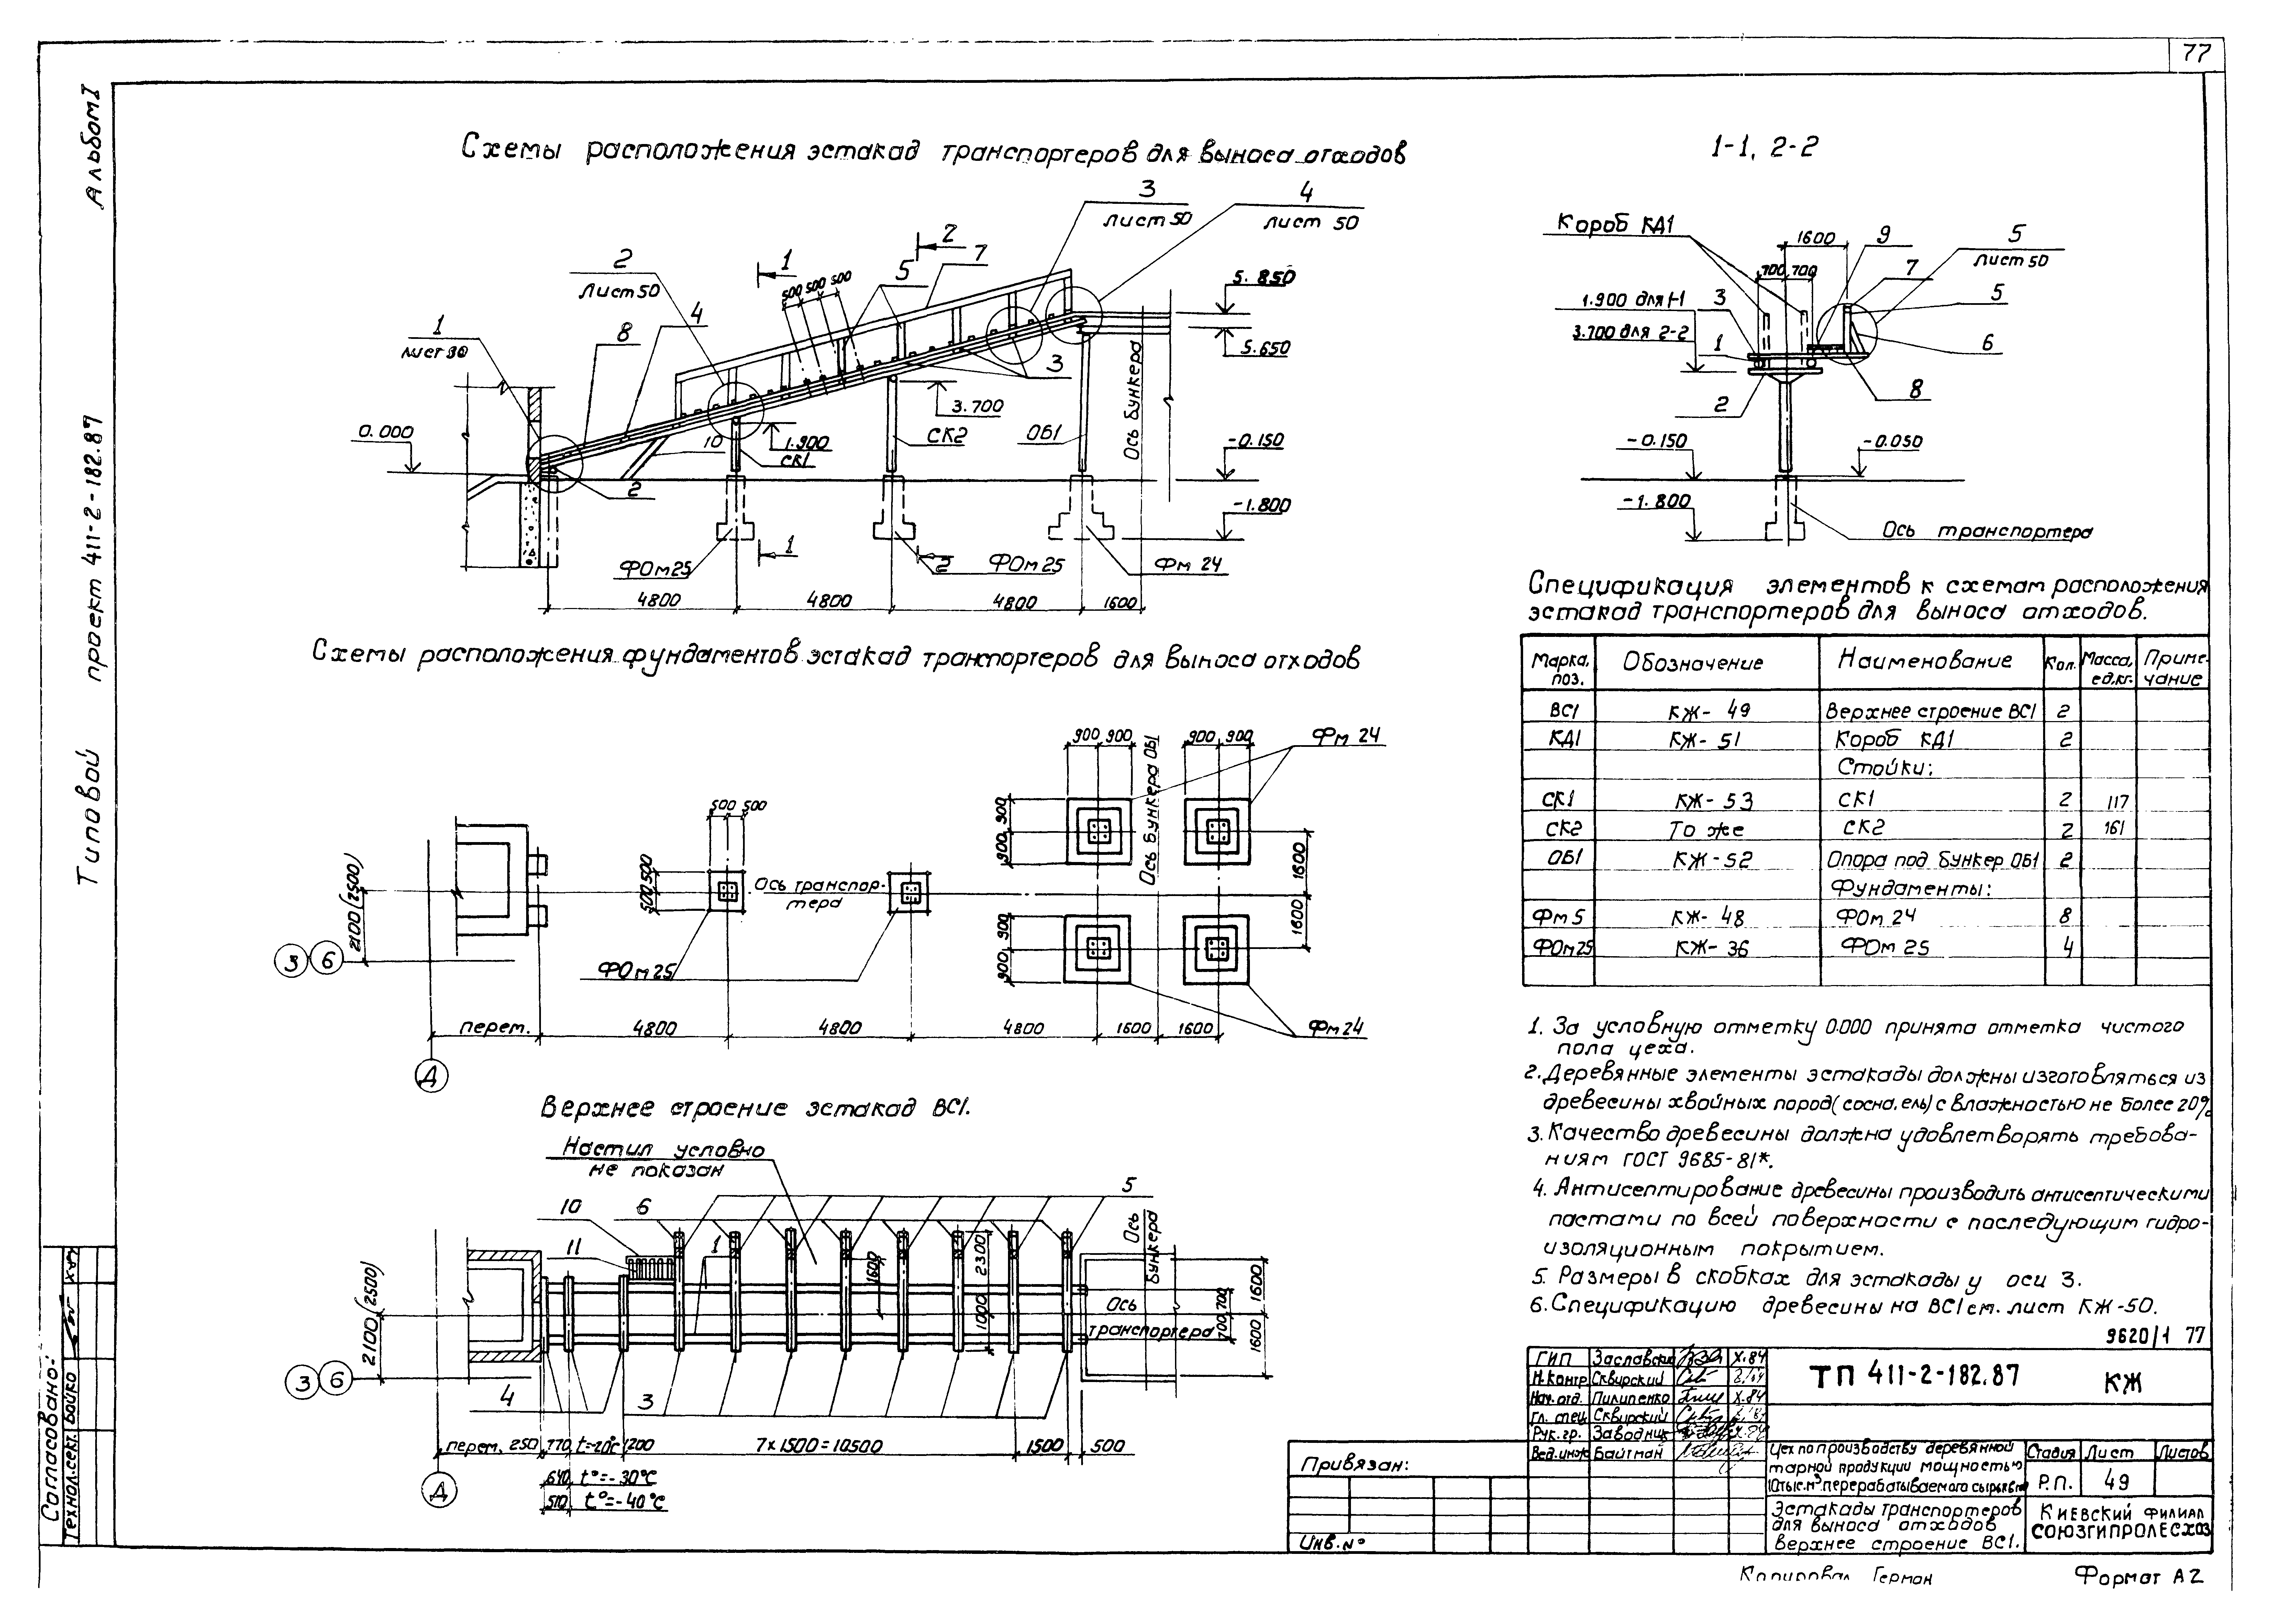 77
Альбом I
Типовой проект 411-2-182.87
Схемы расположения эстакад транспортеров для выноса отходов
1-1, 2-2
3
лист 50
4
лист 50
2
Лист 50
1
8
4
1
500 500 500
5
2
7
5.850
5.650
3
0.000
10
1.900
СК1
3.700
СК2
ОБ1
Ось бункера
-0.150
-1.800
2
ФОм25
1
2
ФОм25
Фм 24
4800
4800
4800
1600
Короб КД1
1600
9
5
лист 50
700 700
7
1.900 для 1-1
3
5
3.700 для 2-2
1
6
2
8
-0.150
-0.050
-1.800
Ось транспортера
Схемы расположения фундаментов эстакад транспортеров для выноса отходов
900 900
Ось бункера ОБ1
900 900
Фм 24
500 500
900 900
500 500
Ось транспор-
тера
1600
1600
2100 (2500)
3 6
ФОм25
900 900
Фм24
перем.
4800
4800
4800
1600
1600
Д
Верхнее строение эстакад ВС1.
Настил условно
не показан
10
6
5
11
1
1600
2300
1000
Ось бункера
Ось
транспортера
700 700
1600
1600
2100 (2500)
3 6
4
3
перем. 250
770 t=-20°C
1200
7 х 1500 = 10500
1500
500
640 t°=-30°C
510 t°=-40°C
Д
Спецификация элементов к схемам расположения
эстакад транспортеров для выноса отходов.
Марка, поз. Обозначение Наименование Кол. Масса, ед.кг. Приме-чание
ВС1 КЖ-49 Верхнее строение ВС1 2
КД1 КЖ-51 Короб КД1 2
Стойки:
СК1 КЖ-53 СК1 2 117
СК2 То же СК2 2 161
ОБ1 КЖ-52 Опора под бункер ОБ1 2
Фундаменты:
Фм 5 КЖ-48 ФОм 24 8
ФОм25 КЖ-36 ФОм 25 4
1. За условную отметку 0.000 принята отметка чистого
пола цеха.
2. Деревянные элементы эстакады должны изготовляться из
древесины хвойных пород (сосна, ель) с влажностью не более 20%
3. Качество древесины должна удовлетворять требова-
ниям ГОСТ 9685-81*.
4. Антисептирование древесины производить антисептическими
пастами по всей поверхности с последующим гидро-
изоляционным покрытием.
5. Размеры в скобках для эстакады у оси 3.
6. Спецификацию древесины на ВС1 см. лист КЖ-50.
9620/1 77
ГИП Заславский X.84
Н.контр Сквирский
Нач.отд. Пилипенко X.84
Гл. спец. Сквирский
Рук.гр. Заводник
Вед.инж Байтман
ТП 411-2-182.87 КЖ
Цех по производству деревянной
тарной продукции мощностью
10 тыс.м³ перерабатываемого сырья в год
Стадия Лист Листов
Р.П. 49
Эстакады транспортеров
для выноса отходов
верхнее строение ВС1.
Киевский филиал
СОЮЗГИПРОЛЕСХОЗ
Привязан:
Инв.№
Согласовано:
Технол.сект. Бойко
Копировал Герман
Формат А2